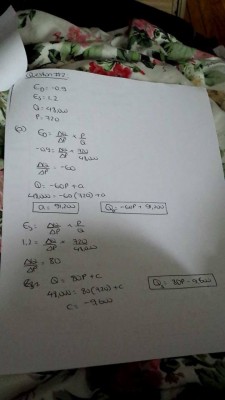 Question #2
ED = -0.9
Es = 1.2
Q = 48,000
P = 720
a) ED = ΔQ/ΔP × P/Q
-0.9 = ΔQ/ΔP × 720/48,000
ΔQ/ΔP = -60
Q = -60P + a
48,000 = -60(720) + a
a = 91,200
QD = -60P + 91,200
Es = ΔQ/ΔP × P/Q
1.2 = ΔQ/ΔP × 720/48,000
ΔQ/ΔP = 80
Q = 80P + c
48,000 = 80(720) + c
c = -9600
Qs = 80P - 9,600